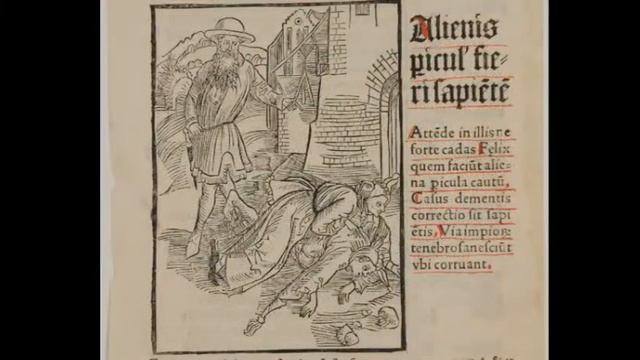 Alienis
picul' fie-
ri sapiētē
Attēde in illis ne
forte cadas Felix
quem faciūt alie-
na picula cautū,
Casus dementis
correctio sit sapi
ētis, Via impiorꝫ
tenebrosa nesciūt
vbi corruant.